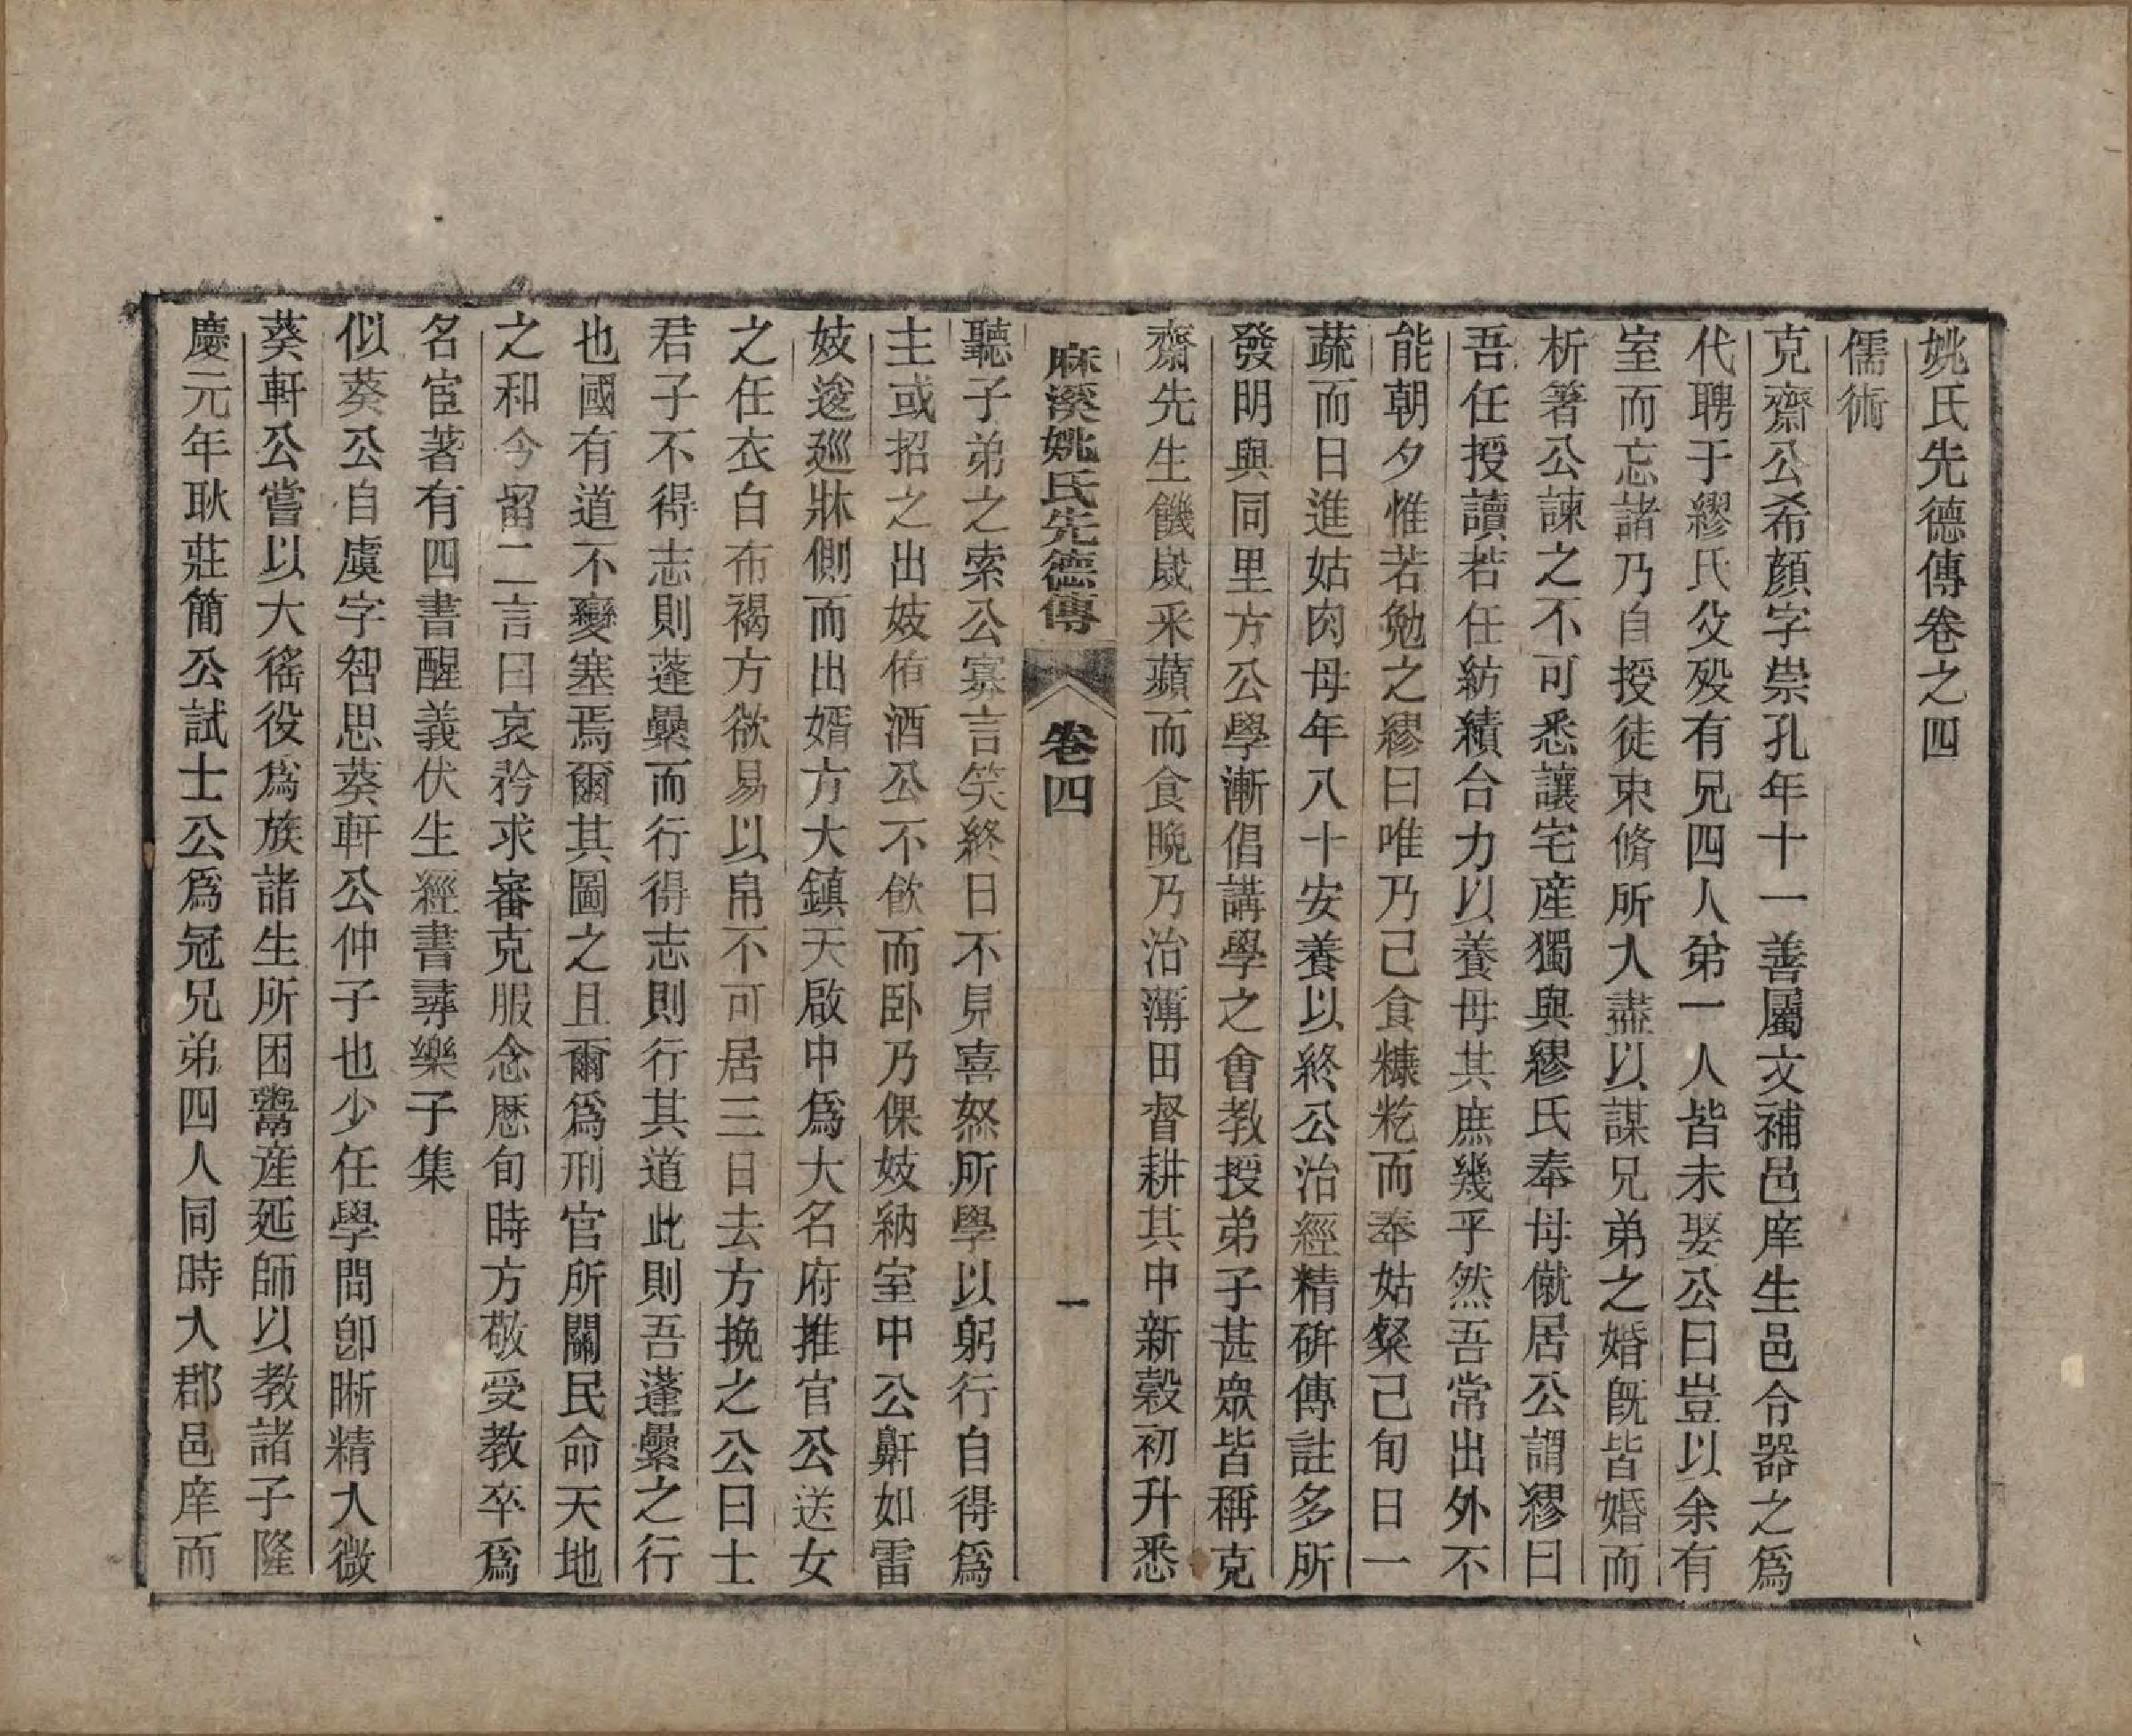 姚氏先德傳卷之四
儒術
克齋公希顏字崇孔年十一善屬文補邑庠生邑令器之爲
代聘于繆氏父歿有兄四人弟一人皆未娶公曰豈以余有
室而忘諸乃自授徒束脩所入盡以謀兄弟之婚旣皆婚而
析箸公諫之不可悉讓宅産獨與繆氏奉母僦居公謂繆曰
吾任授讀若任紡績合力以養母其庶幾乎然吾常出外不
能朝夕惟若勉之繆曰唯乃己食糠籺而奉姑粲己旬日一
蔬而日進姑肉母年八十安養以終公治經精研傳註多所
發明與同里方公學漸倡講學之會教授弟子甚眾皆稱克
齋先生饑嵗采蘋而食晚乃治薄田督耕其中新穀初升悉
麻溪姚氏先德傳 卷四 一
聽子弟之索公寡言笑終日不見喜怒所學以躬行自得爲
主或招之出妓侑酒公不飲而卧乃倮妓納室中公鼾如雷
妓逡廵牀側而出婿方大鎮天啟中爲大名府推官公送女
之任衣白布褐方欲易以帛不可居三日去方挽之公曰士
君子不得志則蓬纍而行得志則行其道此則吾蓬纍之行
也國有道不變塞焉爾其圖之且爾爲刑官所關民命天地
之和今留二言曰哀矜求審克服念厯旬時方敬受教卒爲
名宦著有四書醒義伏生經書尋樂子集
似葵公自虞字智思葵軒公仲子也少任學問卽晰精入微
葵軒公嘗以大徭役爲族諸生所困鬻産延師以教諸子隆
慶元年耿莊簡公試士公爲冠兄弟四人同時入郡邑庠而